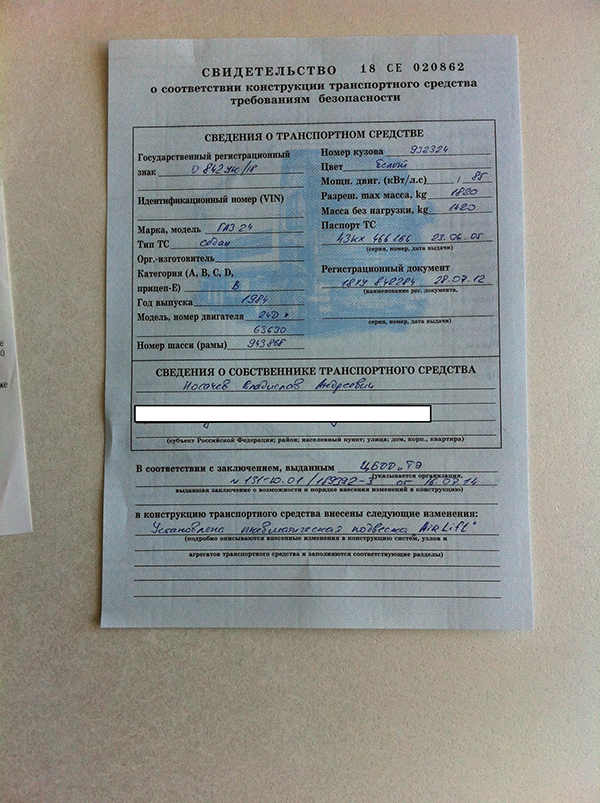 СВИДЕТЕЛЬСТВО 18 СЕ 020862
о соответствии конструкции транспортного средства
требованиям безопасности
СВЕДЕНИЯ О ТРАНСПОРТНОМ СРЕДСТВЕ
Государственный регистрационный
знак О 842 /18
Идентификационный номер (VIN)
Марка, модель ГАЗ 24
Тип ТС седан
Орг.-изготовитель
Категория (A, B, C, D,
прицеп-E) B
Год выпуска 1984
Модель, номер двигателя 24Д
63630
Номер шасси (рамы) 943868
Номер кузова 932324
Цвет белый
Мощн. двиг. (кВт/л.с) / 85
Разреш. max масса, kg 1820
Масса без нагрузки, kg 1420
Паспорт ТС
43КХ 466166 23.06.05
(серия, номер, дата выдачи)
Регистрационный документ
18ТУ 848284 28.07.12
(наименование рег. документа,
серия, номер, дата выдачи)
СВЕДЕНИЯ О СОБСТВЕННИКЕ ТРАНСПОРТНОГО СРЕДСТВА
Носачев Владислав Андреевич
(субъект Российской Федерации; район; населенный пункт; улица; дом, корп., квартира)
В соответствии с заключением, выданным ЦБДД и ТЭ
(указывается организация,
от 16.07.14
выдавшая заключение о возможности и порядке внесения изменений в конструкцию)
в конструкцию транспортного средства внесены следующие изменения:
Установлена пневматическая подвеска "Air Lift"
(подробно описываются внесенные изменения в конструкцию систем, узлов и
агрегатов транспортного средства и заполняются соответствующие разделы)